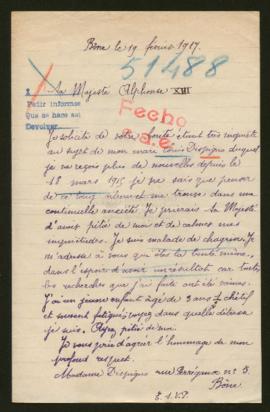 Bône le 19 février 1917.
51488
1. Sa Majesté Alphonse XIII
Pedir informes
Que se hace así
Devolver.
Fecho
Je sollicite de votre bonté étant très inquiète
au sujet de mon mari Louis duquel
je ne reçois plus de nouvelles depuis le
18 mars 1915 je ne sais que penser
de ce long silence et me trouve dans une
continuelle anxiété. Je prierais Sa Majesté
d'avoir pitié de moi et de calmer mes
inquiétudes. Je suis malade de chagrin. Je
m'adresse à vous que êtes la toute
dans l'espoir d'avoir un résultat car toutes
les recherches que j'ai faites ont été vaines.
J'ai un jeune enfant âgé de 3 ans ½ chétif
et souvent fatigué; voyez dans quelle détresse
je suis. Ayez pitié de moi.
Je vous prie d'agréer l'hommage de mon
profond respect.
Madame rue n° 5
Bône
S.V.P.